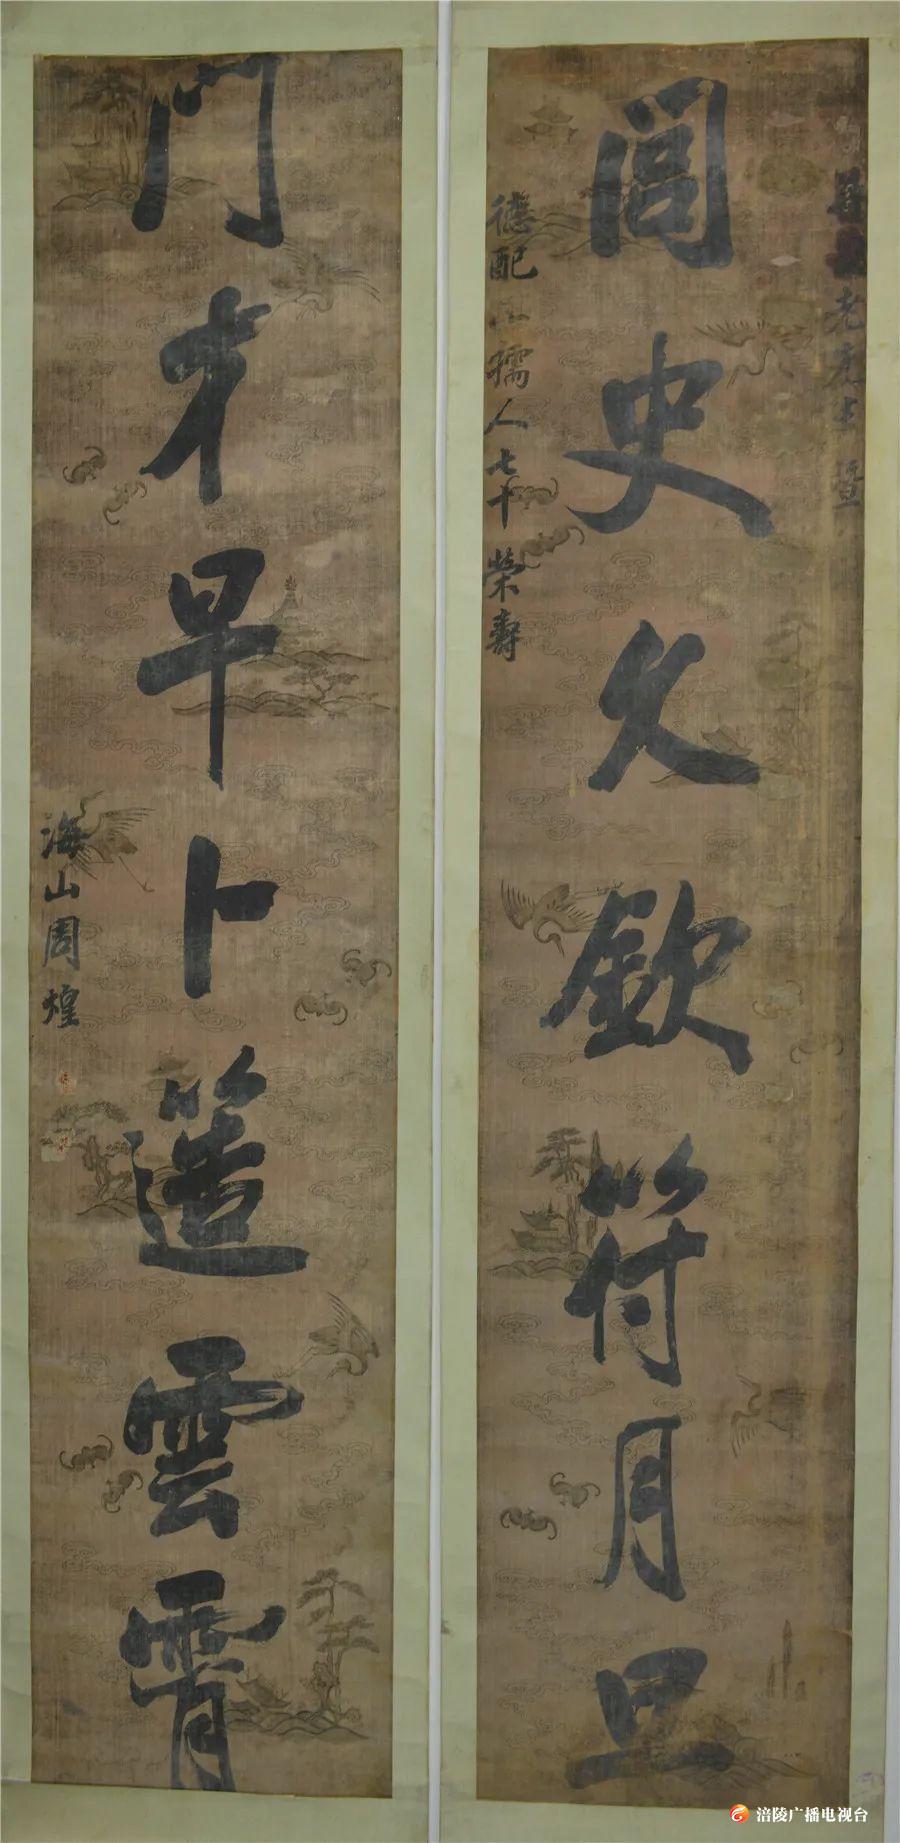 老先生暨
閭史久欽符月旦
德配孺人七十榮壽
門才早卜簉雲霄
海山周煌
涪陵广播电视台